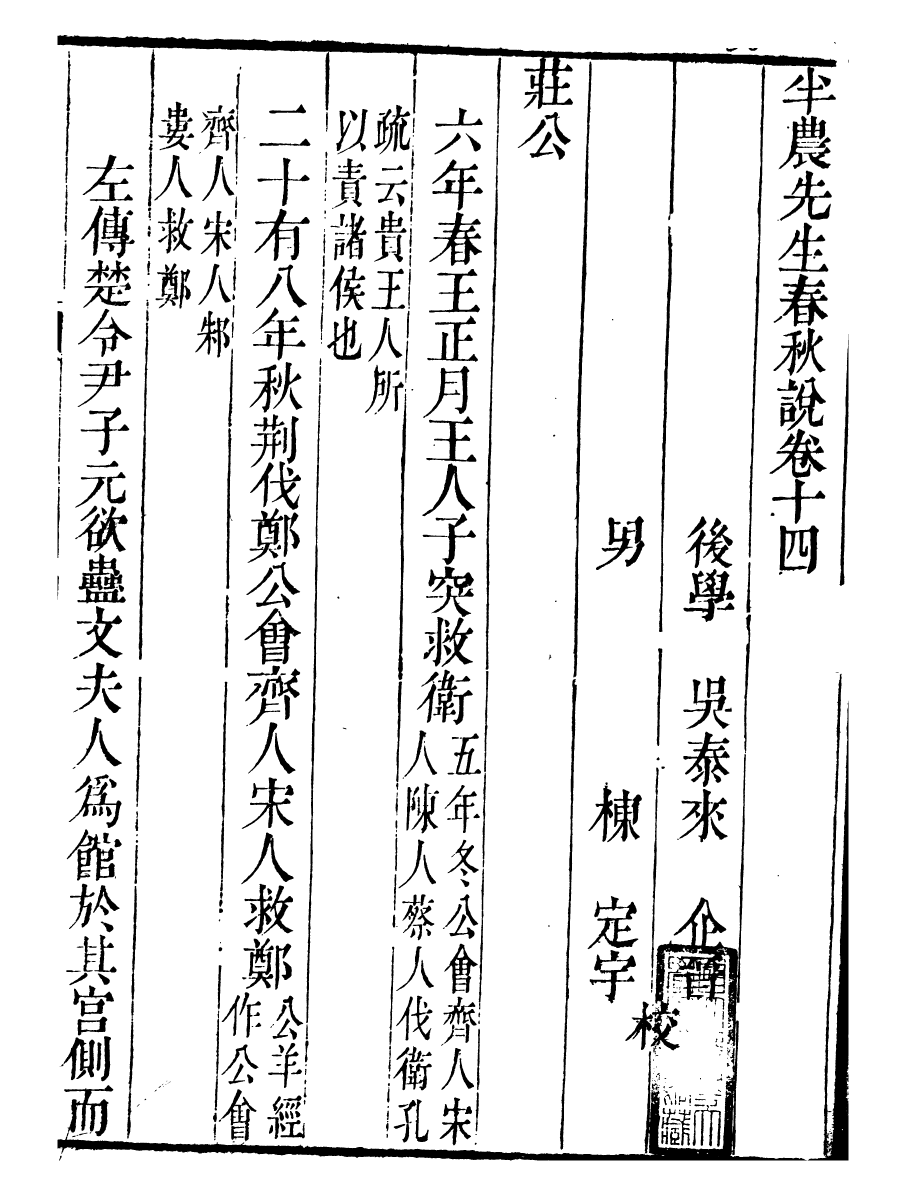 半農先生春秋說卷十四
後學　吳泰來　企晉
男　棟　定宇
校
莊公
六年春王正月王人子突救衛五年冬公會齊人宋
人陳人蔡人伐衛孔
疏云貴王人所
以責諸侯也
二十有八年秋荆伐鄭公會齊人宋人救鄭公羊經
作公會
齊人宋人邾
婁人救鄭
左傳楚令尹子元欲蠱文夫人爲館於其宮側而